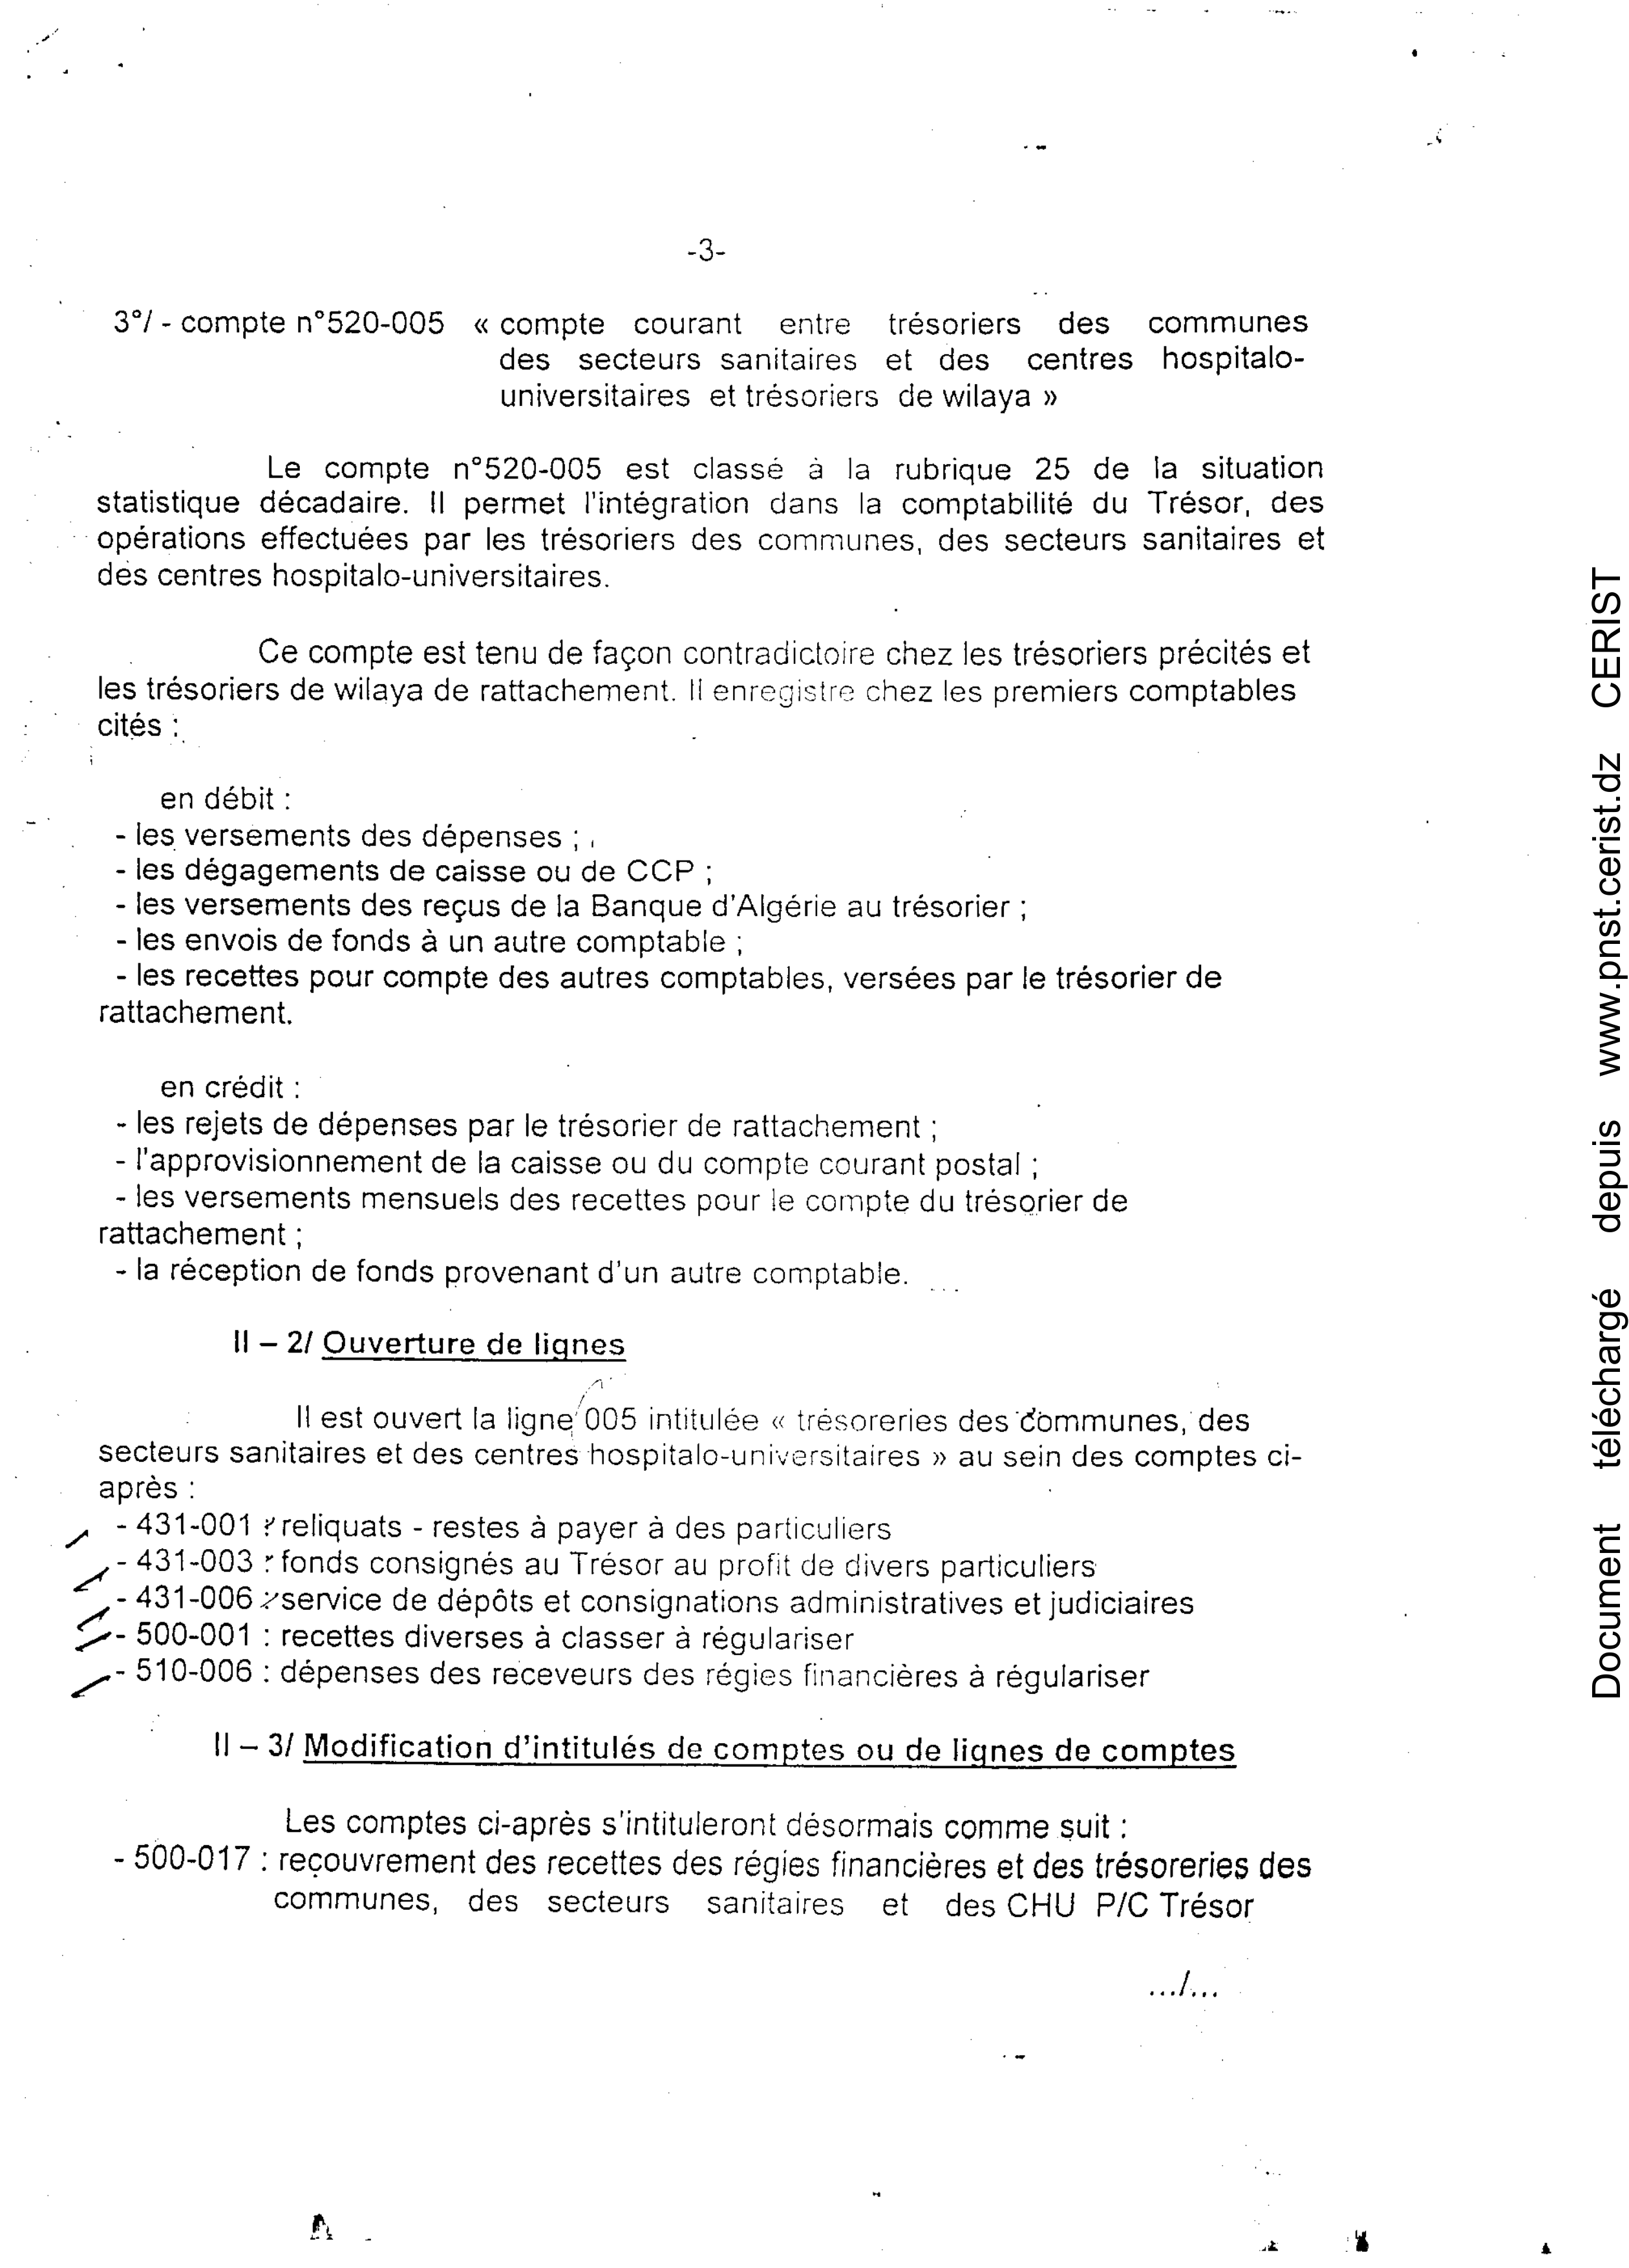 -3-
3°/ - compte n°520-005 « compte courant entre trésoriers des communes
des secteurs sanitaires et des centres hospitalo-
universitaires et trésoriers de wilaya »
Le compte n°520-005 est classé à la rubrique 25 de la situation
statistique décadaire. Il permet l'intégration dans la comptabilité du Trésor, des
opérations effectuées par les trésoriers des communes, des secteurs sanitaires et
des centres hospitalo-universitaires.
Ce compte est tenu de façon contradictoire chez les trésoriers précités et
les trésoriers de wilaya de rattachement. Il enregistre chez les premiers comptables
cités :
en débit :
- les versements des dépenses ;
- les dégagements de caisse ou de CCP ;
- les versements des reçus de la Banque d'Algérie au trésorier ;
- les envois de fonds à un autre comptable ;
- les recettes pour compte des autres comptables, versées par le trésorier de
rattachement.
en crédit :
- les rejets de dépenses par le trésorier de rattachement ;
- l'approvisionnement de la caisse ou du compte courant postal ;
- les versements mensuels des recettes pour le compte du trésorier de
rattachement ;
- la réception de fonds provenant d'un autre comptable.
II – 2/ Ouverture de lignes
Il est ouvert la ligne 005 intitulée « trésoreries des communes, des
secteurs sanitaires et des centres hospitalo-universitaires » au sein des comptes ci-
après :
- 431-001 : reliquats - restes à payer à des particuliers
- 431-003 : fonds consignés au Trésor au profit de divers particuliers
- 431-006 : service de dépôts et consignations administratives et judiciaires
- 500-001 : recettes diverses à classer à régulariser
- 510-006 : dépenses des receveurs des régies financières à régulariser
II – 3/ Modification d'intitulés de comptes ou de lignes de comptes
Les comptes ci-après s'intituleront désormais comme suit :
- 500-017 : reçouvrement des recettes des régies financières et des trésoreries des
communes, des secteurs sanitaires et des CHU P/C Trésor
.../...
Document téléchargé depuis www.pnst.cerist.dz CERIST